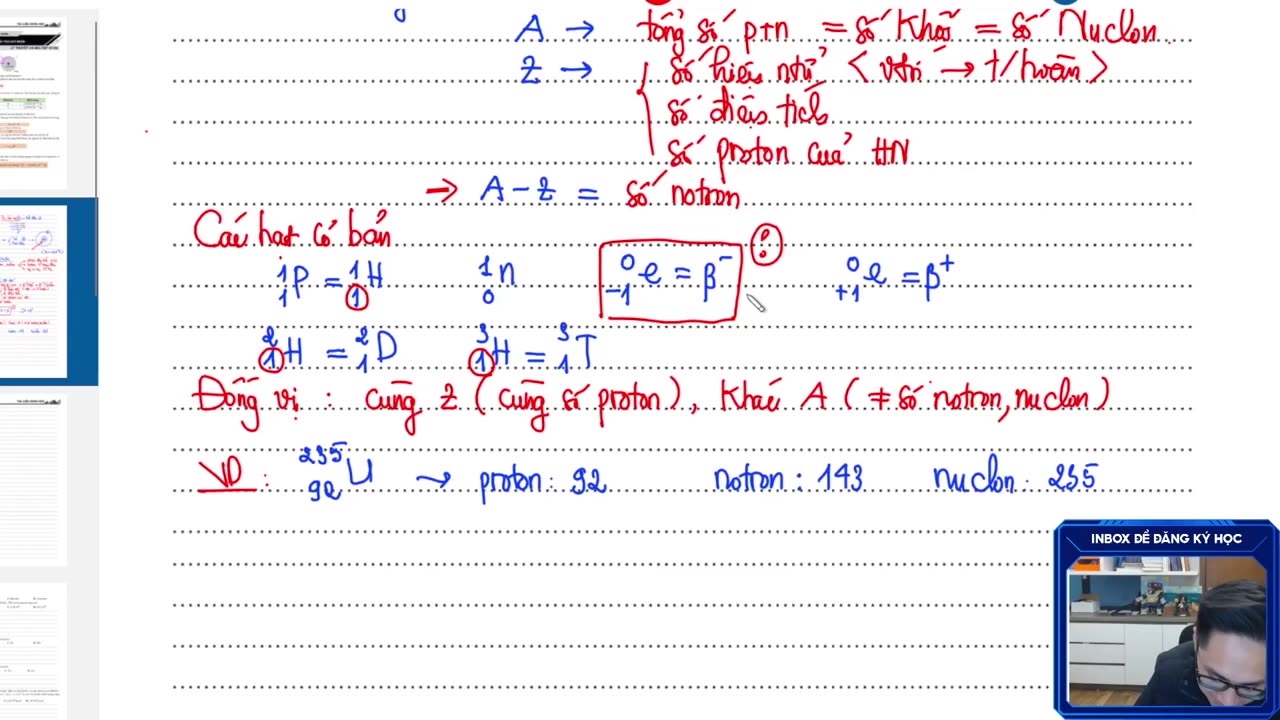 A → tổng số p+n = số khối = số Nuclon
Z → số hiệu ntử < vtrí → t/hoàn >
số điện tích
số proton của HN
→ A - Z = số nơtron
Các hạt cơ bản
¹₁P = ¹₁H ¹₀n ⁰₋₁e = β⁻ ⁰₊₁e = β⁺
²₁H = ²₁D ³₁H = ³₁T
Đồng vị : cùng Z ( cùng số proton ), khác A ( ≠ số nơtron, nuclon )
VD : ²³⁵₉₂U → proton : 92 nơtron : 143 nuclon : 235
INBOX ĐỂ ĐĂNG KÝ HỌC